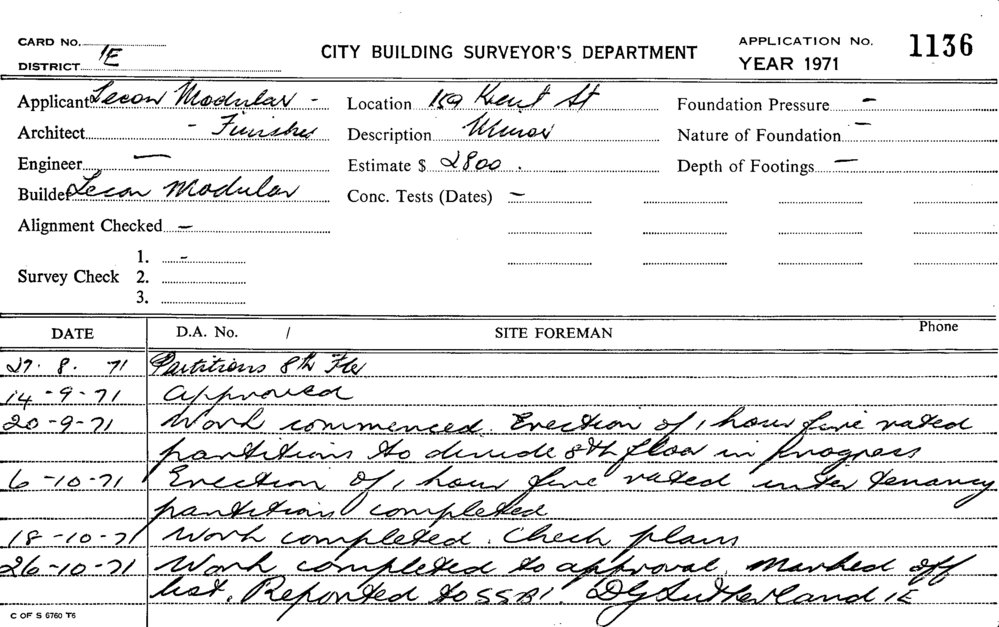 CARD No.
DISTRICT 1E
CITY BUILDING SURVEYOR'S DEPARTMENT
APPLICATION No. 1136
YEAR 1971
Applicant Lecon Modular -
Location 159 Kent St
Foundation Pressure —
Architect - Finishes
Description Minor
Nature of Foundation —
Engineer —
Estimate $ 2800 .
Depth of Footings —
Builder Lecon Modular
Conc. Tests (Dates) —
Alignment Checked —
Survey Check
1. -
2.
3.
DATE D.A. No. / SITE FOREMAN Phone
27. 8. 71 Partitions 8th Flr
14-9-71 Approved
20-9-71 Work commenced. Erection of 1 hour fire rated
partitions to divide 8th floor in progress
6-10-71 Erection of 1 hour fire rated inter tenancy
partitions completed
18-10-71 Work completed. Check plans
26-10-71 Work completed to approval. Marked off
list. Reported to SSBI. DG Sutherland 1E
C OF S 6760 T6